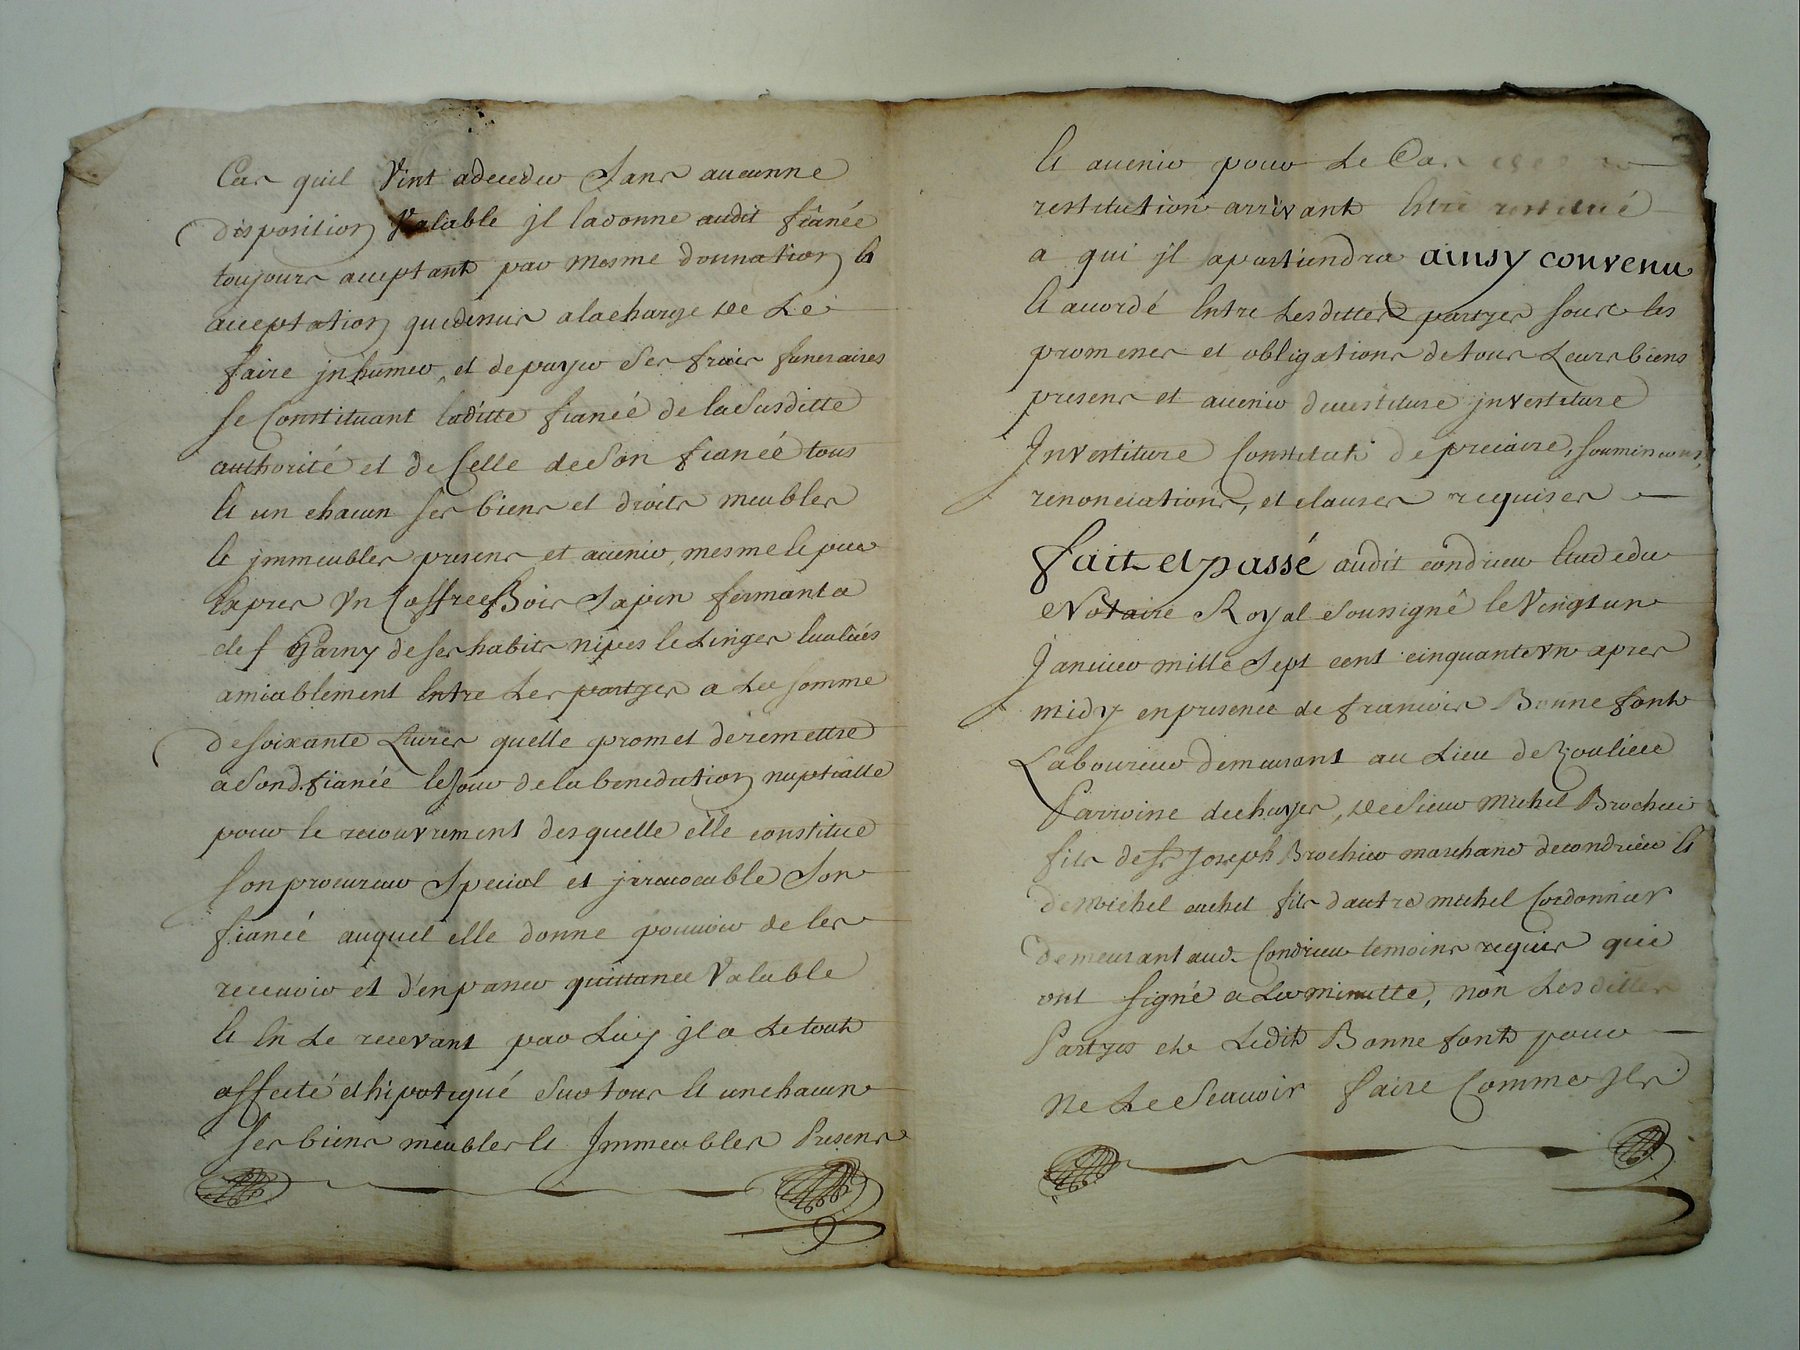 Cas quil Vint adeceder Sans aucunne
disposition Valable jl ladonne audit fiancée
toujours aceptant par mesme donnation Et
acceptation quedessus alacharge de Le
faire jnhumer et depayer Ses frais funeraires
Se Constituant laditte fiancée de laSusditte
authorité et de Celle deSon fiancée tous
Et un chacun ses biens et droits meubles
Et jmmeubles presens et avenir, mesme le pour
Expres Vn Coffre Bois Sapin fermant a
clef Garny de ses habits nipes Et Linges Evalués
amiablement Entre Les partyes a La somme
deSoixante Livres quelle promet deremettre
aSond. fiancée leJour de la benediction nuptialle
pour le recouvrement desquelle elle constitue
son procureur Special et jrrevocable Son
fiancée auquel elle donne pouvoir de les
recevoir et d'enpasser quittance Valable
Et En Le recevant par Luy jl a Le tout
affecté et hipotequé Sur tous Et unchacun
Ses biens meubles Et Jmmeubles Presens
Et avenir pour Le Cas
restitution arrivant Estre restitué
a qui jl apartiendra ainsy convenu
Et acordé Entre Lesdittes partyes sous les
promesses et obligations de tous Leurs biens
presens et avenir devestiture jnvestiture
Jnvestiture Constitut de precaire, soumissions,
renonciations, et clauses requises
fait et passé audit condrieu Etude du
Notaire Royal Soussigné le Vingtun
Janvier mille Sept cent cinquante vn apres
midy enpresence de francois Bonnefont
Laboureur demeurant au Lieu de
Parroine dechuyes, de Sieur Michel Brochier
fils de Sr Joseph Brochier marchand decondrieu Et
de Michel cuchet fils dautre michel Cordonnier
demeurant aud. Condrieu temoins requis qui
ont signé a La minutte, non Lesdittes
Partyes et Ledit Bonnefont pour
ne Le Scavoir faire Comme jls